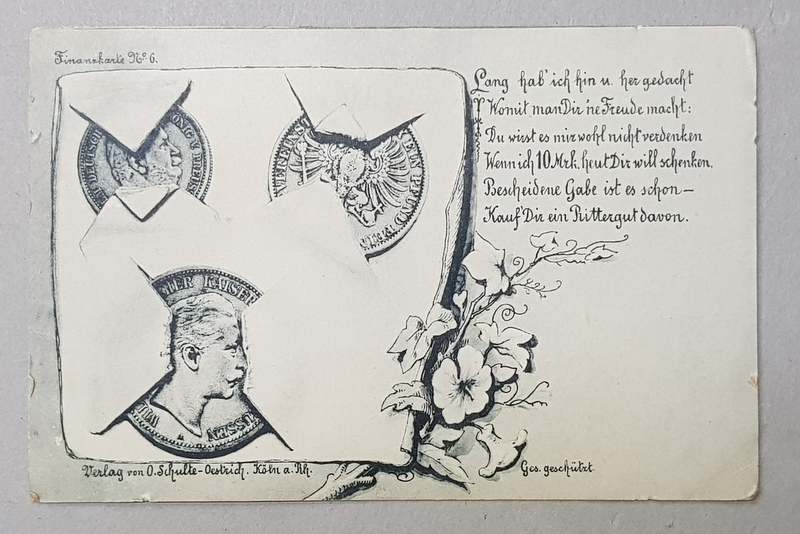 Finanzkarte No 6.
Lang hab' ich hin u. her gedacht
Womit man Dir 'ne Freude macht:
Du wirst es mir wohl nicht verdenken
Wenn ich 10 Mrk. heut Dir will schenken.
Bescheidene Gabe ist es schon —
Kauf Dir ein Rittergut davon.
VEREINS
EIN PFUND
KAISER
WIL
USSEN
Verlag von O. Schulte-Oestrich. Köln a. Rh.
Ges. geschützt